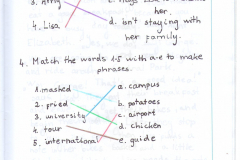 her.
4. Lisa
d. isn't staying with
her family.
4. Match the words 1-5 with a-e to make
phrases.
1. mashed
a. campus
2. fried
b. potatoes
3. university
c. airport
4. tour
d. chicken
5. international
e. guide